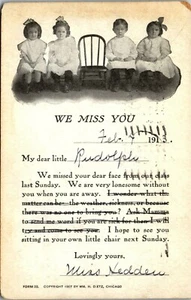 WE MISS YOU
Feb. 9 1913.
My dear little Rudolph
We missed your dear face from our class
last Sunday. We are very lonesome without
you when you are away. I wonder what the
matter can be—the weather, sickness, or because
there was no one to bring you? Ask Mamma
to send me word if you are sick for then I will
try and come to see you. I hope to see you
sitting in your own little chair next Sunday.
Lovingly yours,
Miss Hedden
FORM 25. COPYRIGHT 1907 BY WM. H. DIETZ, CHICAGO